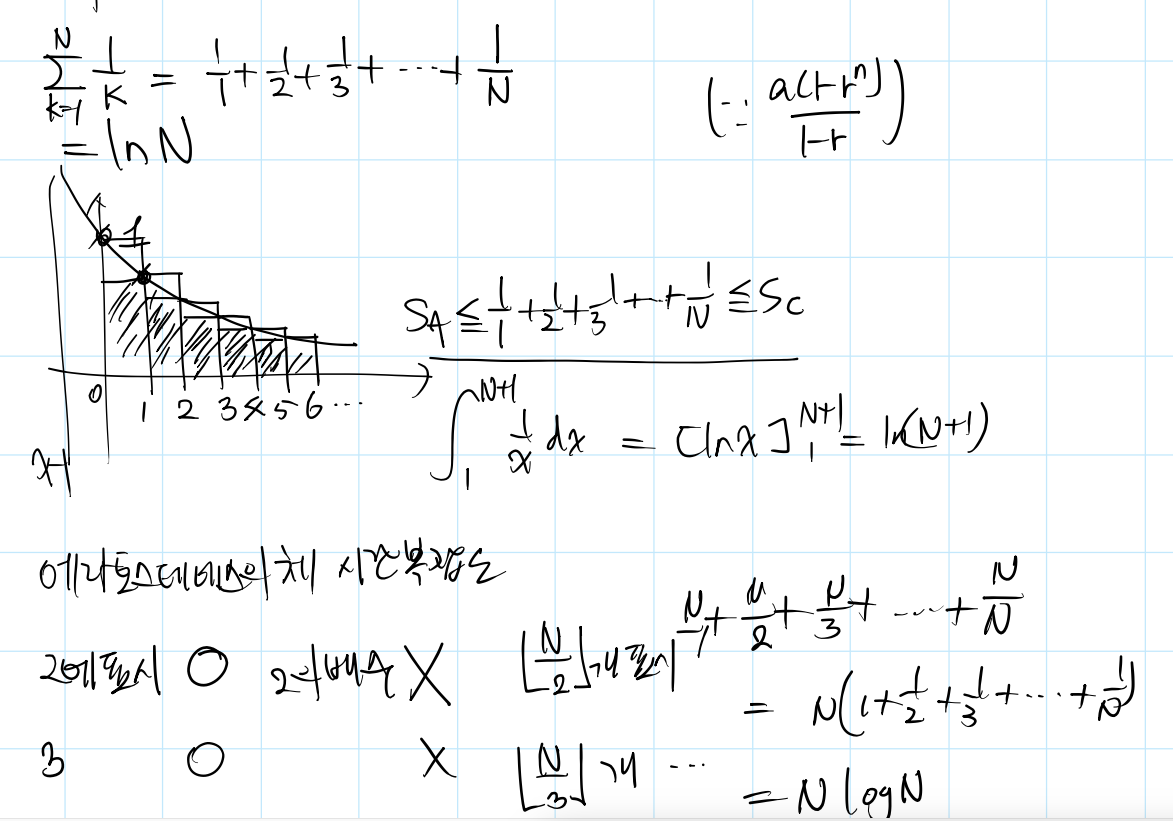 \sum_{k=1}^{N} \frac{1}{K} = \frac{1}{1} + \frac{1}{2} + \frac{1}{3} + ⋯ + \frac{1}{N}
= ln N
(∵ \frac{a(1-r^n)}{1-r})
1
0 1 2 3 4 5 6 ⋯
x=-1
S_A ≦ \frac{1}{1} + \frac{1}{2} + \frac{1}{3} + ⋯ + \frac{1}{N} ≦ S_C
\int_{1}^{N+1} \frac{1}{x} dx = [ln x]_{1}^{N+1} = ln(N+1)
에라토스테네스의 체 시간복잡도
2에 표시 ○ 2의 배수 X ⌊\frac{N}{2}⌋개 표시
3 ○ X ⌊\frac{N}{3}⌋개 ⋯
\frac{N}{1} + \frac{N}{2} + \frac{N}{3} + ⋯ + \frac{N}{N}
= N(1 + \frac{1}{2} + \frac{1}{3} + ⋯ + \frac{1}{N})
= N log N